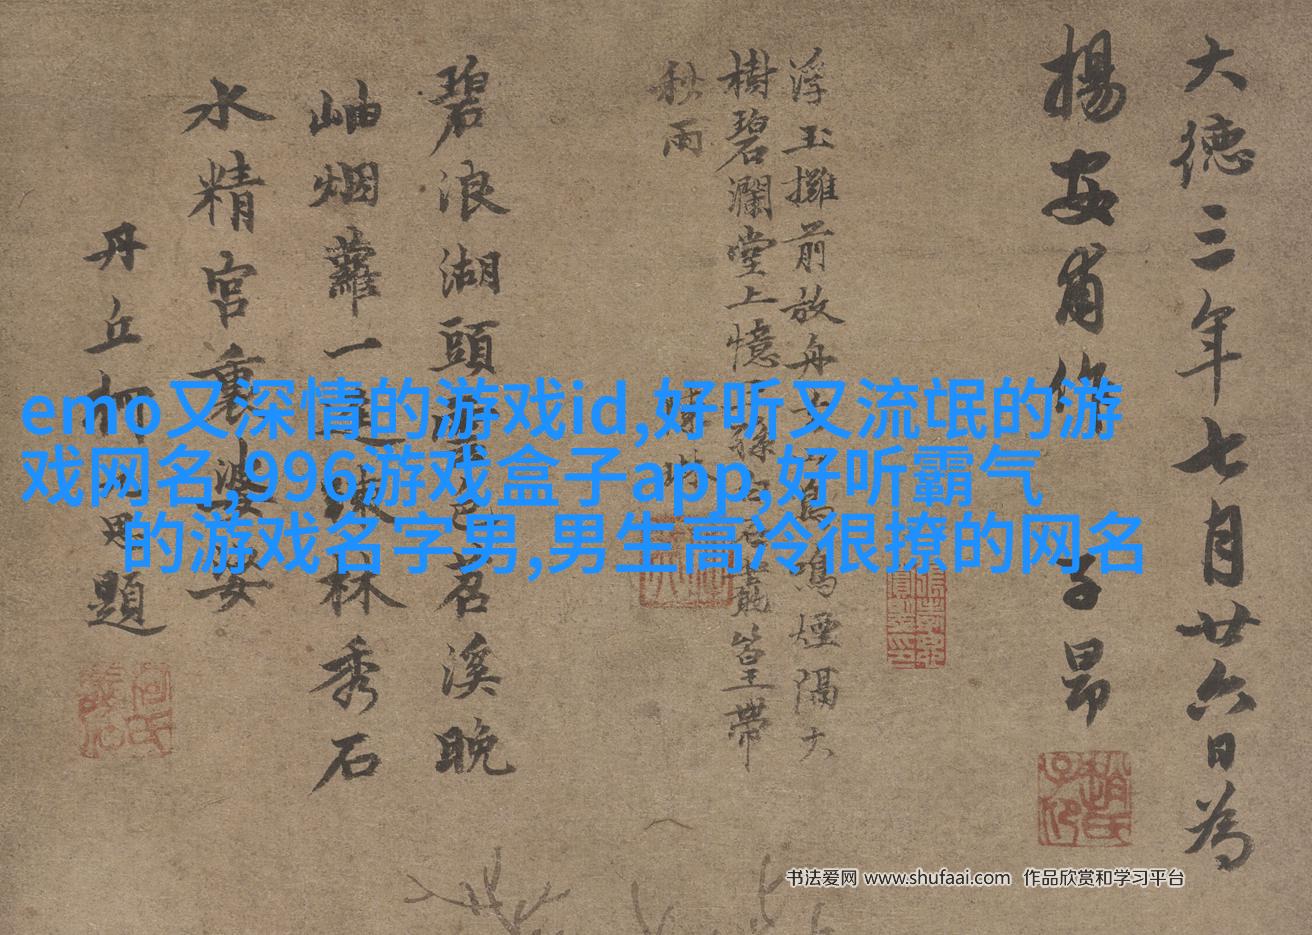 大德三年七月廿六日為
揚安甫作子昂
浮玉攤前放舟鳴煙隔大
樹碧瀾堂上憶篁帶
秋雨
碧浪湖頭苕溪晚
岫烟蘿一林秀石
水精宮裏
丹丘柯題
emo又深情的游戏id,好听又流氓的游
戏网名,996游戏盒子app,好听霸气
的游戏名字男,男生高冷很撩的网名
书法爱网 www.shufaai.com 作品欣赏和学习平台